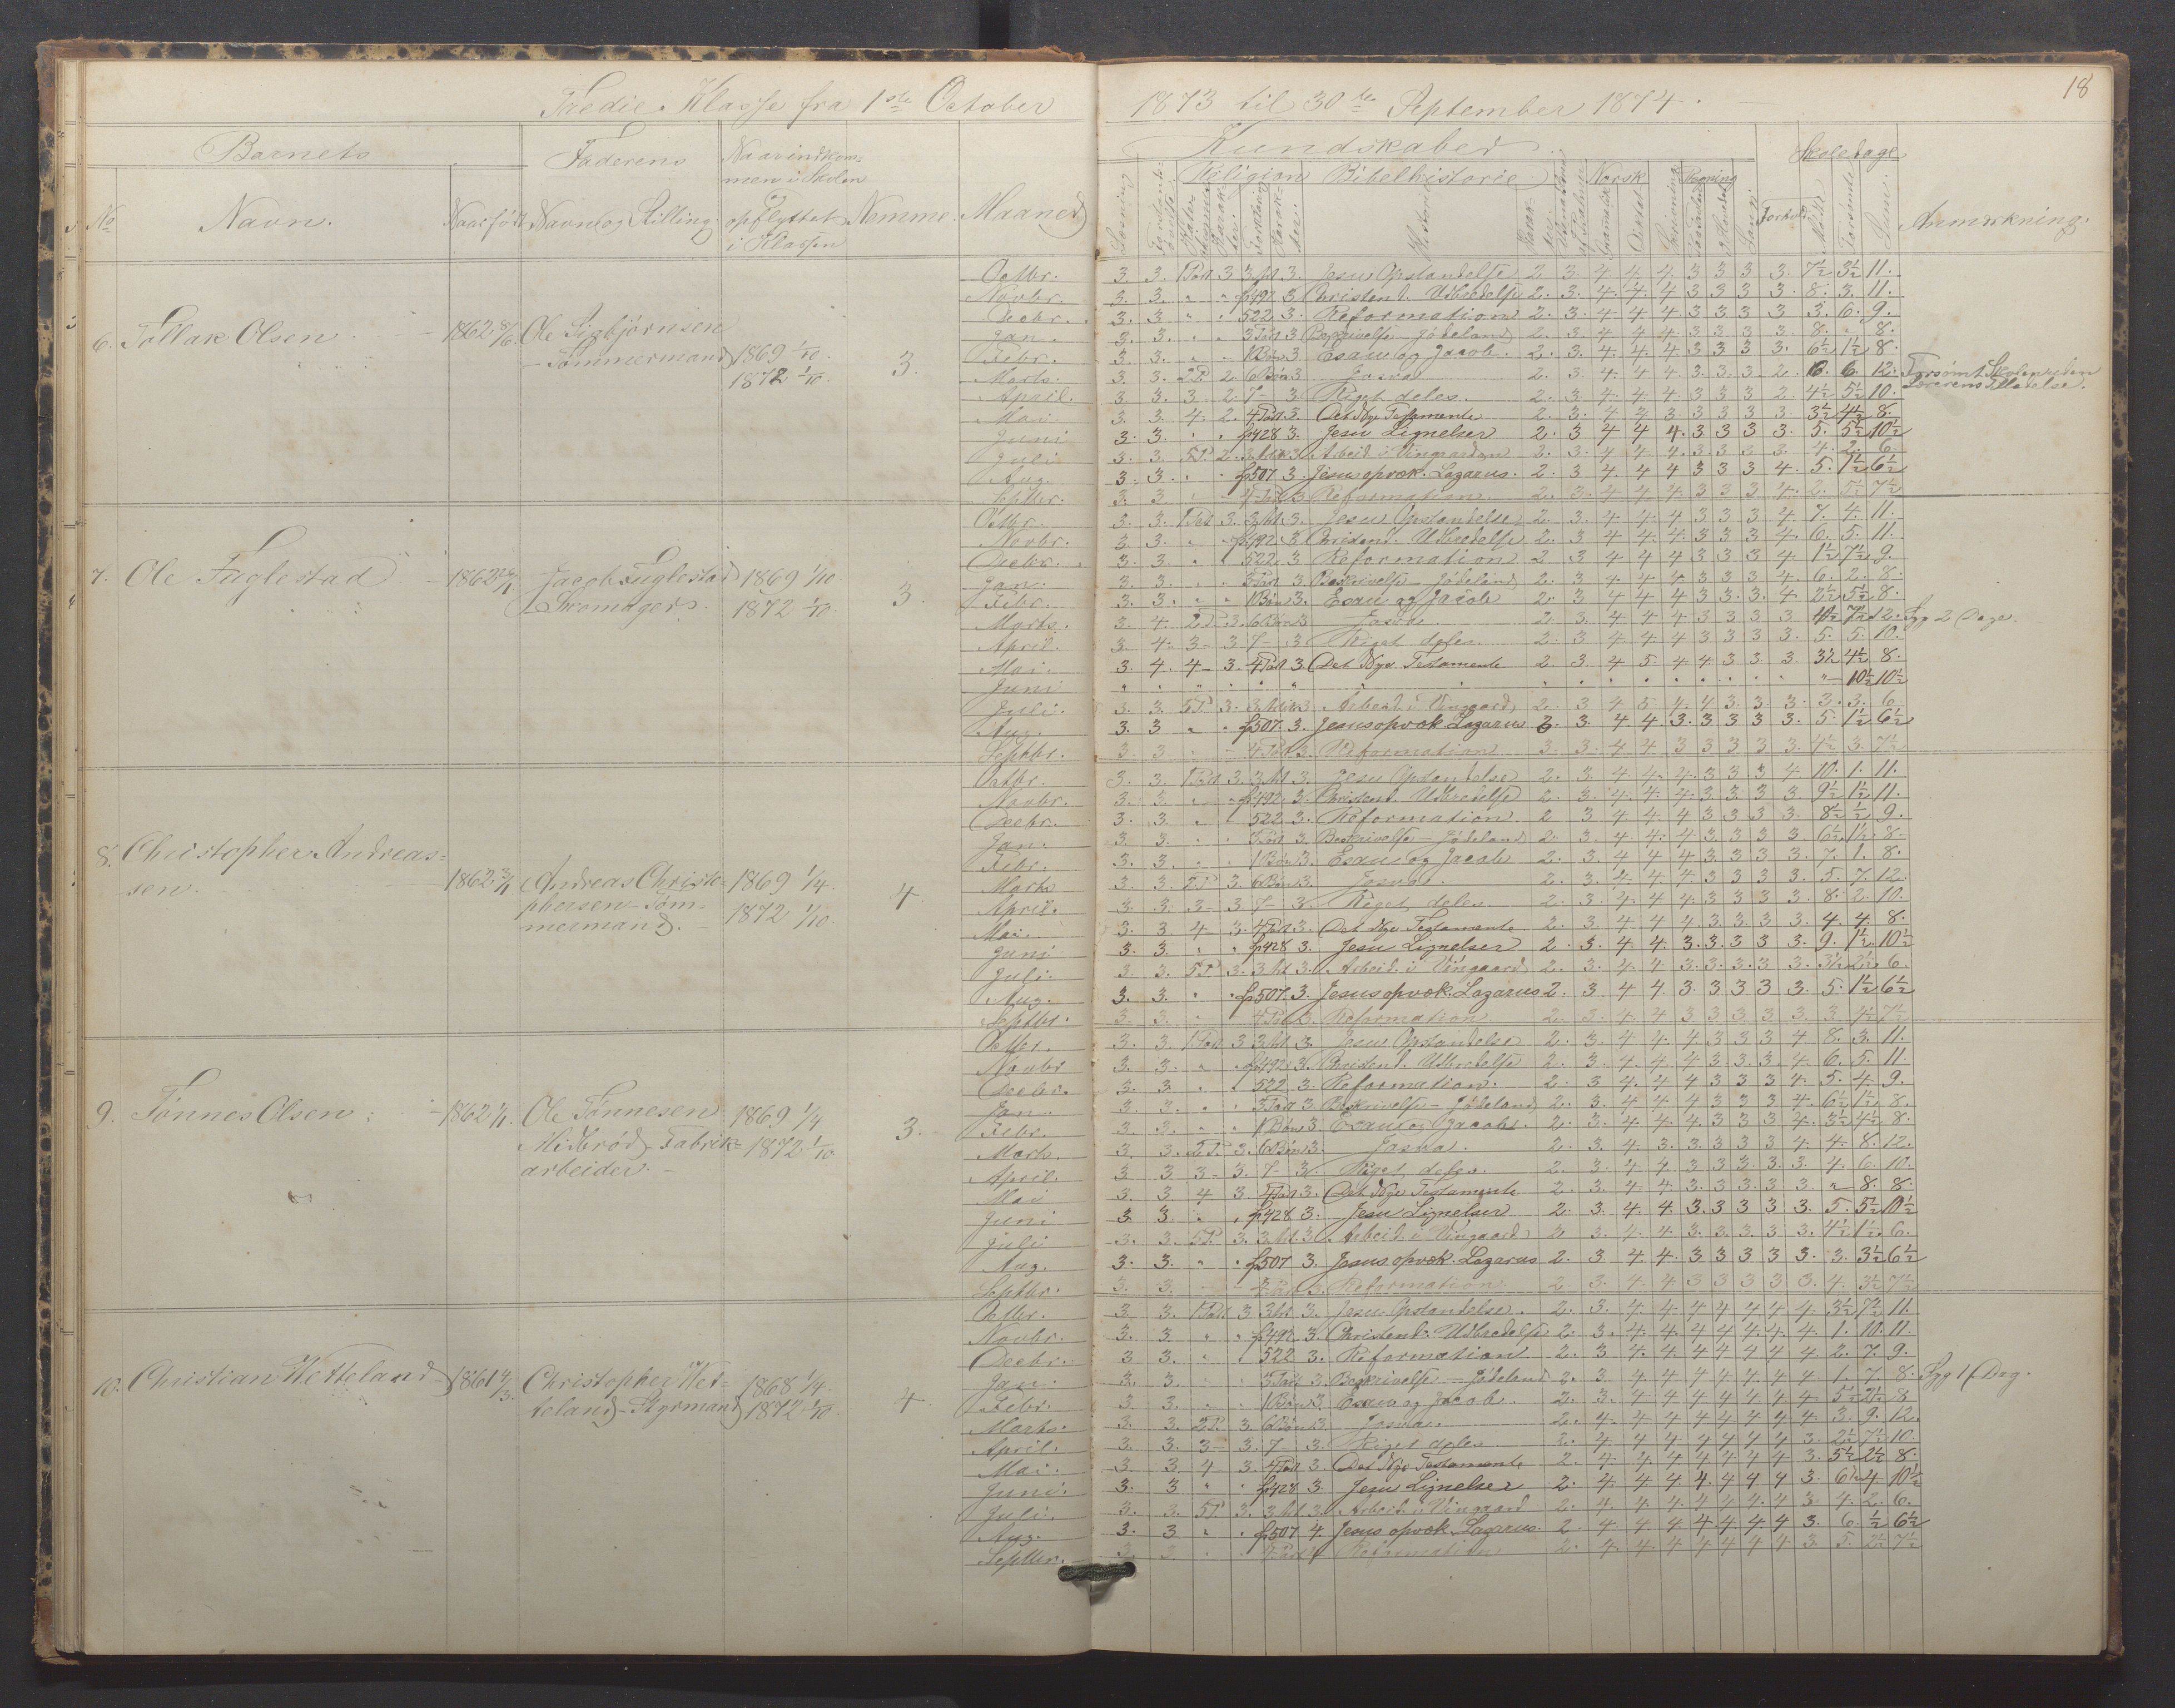 18
Tredie Klasse fra 1ste October 1873 til 30te September 1874.
Barnets
Faderens
Naar indkommen i Skolen
opflyttet i Klassen
No
Navn.
Naar født
Navn og Stilling.
Nemme.
Maaned
Kundskaber
Religion
Bibelhistorie
Norsk
Regning
Skoledage
Læsning
Forhold
Sum.
Anmærkning.
6. Tollak Olsen 1862 8/6 Ole Sigbjørnsen
- Tømmermand
1869 1/10.
1872 1/10.
3.
Octbr. 3. 3. 1 Part 3 3 Art 3. Jesu Opstandelse 2. 3. 4. 4. 4. 3 3 3 3. 7½ 3½ 11.
Novbr. 3. 3. " " fr 492 3 Christend. Udbredelse 2. 3. 4. 4. 4 3 3 3 3. 8. 3. 11.
Decbr. 3. 3 " " 522 3. Reformation 2. 3. 4. 4 4 3 3 3 3 3. 6. 9.
Jan. 3. 3. " " 3 Part 3 Beskrivelse - Jødeland 2. 3. 4. 4. 4. 3 3 3 3. 8. " 8.
Febr. 3. 3. " " 1 Bøn 3 Esau og Jacob. 2. 3. 4. 4. 4 3 3 3 3. 6½ 1½ 8.
Marts. 3. 3. 2 P. 2 6 Bøn 3 Josva 2. 3. 4. 4 4. 3. 3. 3. 2. 6. 6 12. Forsømt Skolen uden
Lærerens Tilladelse.
April. 3. 3. 3 2. 7 - 3. Riget deles. 2. 3. 4. 4. 4. 3 3 3 2. 4½ 5½ 10.
Mai. 3. 3. 4. 2. 4 Part 3. Det Nye Testamente 2. 3. 4. 3 3. 3 3 3 3. 3½ 4½ 8.
Juni 3. 3. " " fr 428 3. Jesu Lignelser 2. 3 4 4 4. 3 3 3 3. 5. 5½ 10½
Juli 3. 3. 5 P. 2. 3 Artik 3. Arbeid. i Vingaarden 2. 3. 4 4 4. 3. 3 3 3. 4. 2. 6
Aug. 3. 3. " " fr 507 3. Jesus opvæk. Lazarus. 2. 3 4 4 4 3 3 3 4. 5. 1½ 6½
Septbr. 3. 3 " " 4 Part 3 Reformation 2. 3. 4. 4. 4. 3 3 3 4. 2. 5½ 7½
7. Ole Fuglestad 1862 Jacob Fuglestad
Skomager.
1869 1/10.
1872 1/10.
3.
Octbr. 3. 3. 1 Part 3. 3 Art. 3. Jesu Opstandelse 2. 3. 4. 4. 4 3 3 3 4 7. 4. 11.
Novbr. 3. 3. " " fr 492. 3 Christend. Udbredelse 2. 3 4. 4. 4. 3 3 3 4. 6. 5. 11.
Decbr. 3. 3. " " 522. 3 Reformation 2 3 4 4 4 3 3 3 4. 1½ 7½ 9.
Jan. 3. 3. " " 3 Part 3 Beskrivelse - Jødeland 2. 3 4. 4. 4. 3 3 3 4. 6. 2. 8.
Febr. 3. 3. " " 1 Bøn 3. Esau og Jacob 2. 3 4 4 4 3 3. 3. 4. 2½ 5½ 8.
Marts. 3 4. 2 P. 3. 6 Bøn 3 Josva. 2. 3 4. 4 4 3 3 3 3 4½ 7½ 12. Syg 2 Dage.
April. 3 4. 3 - 3 7 - 3 Riget deles 2. 3 4. 4. 4 3 3 3 3. 5. 5. 10.
Mai. 3 4. 4 - 3. 4 Part 3. Det Nye Testamente 2. 3 4 5 4. 4 3 3 3. 3½ 4½ 8.
Juni " " " " " " " " " " " " " " " " " 10½ 10½
Juli. 3. 3 5 P. 3. 3 Artik 3 Arbeid. i Vingaard 2. 3 4 5 4. 4 3. 3. 3. 3. 3. 6.
Aug. 3. 3 " " fr 507. 3. Jesus opvæk. Lazarus 3. 3. 4 4. 3. 3 3 3 3. 5. 1½ 6½
Septbr. 3 3 " " 4 Part 3 Reformation 3. 3. 4 4 3 3 3 3 3. 4½ 3. 7½
8. Christopher Andreas-
sen.
1862 Andreas Christo-
phersen - Tøm-
mermand.
1869 1/4.
1872 1/10.
4.
Octbr. 3. 3. 1 Part 3. 3 Art 3. Jesu Opstandelse 2. 3. 4. 4. 4. 3. 3 3 4 10. 1. 11.
Novbr. 3. 3. " " fr 492. 3. Christend. Udbredelse 2. 3. 4. 4. 4. 3. 3. 3 3 9½ 1½ 11.
Decbr. 3. 3. " " 522 3. Reformation. 2 3 4 4 4 3 3 3 3. 8½ ½ 9.
Jan. 3. 3. " " 3 Part 3 Beskrivelse - Jødeland 2. 3. 4. 4. 4 3 3 3 3 6½ 1½ 8.
Febr. 3. 3. " " 1 Bøn 3. Esau og Jacob 2. 3. 4 4 4 3 3 3 3. 7. 1. 8.
Marts 3. 3. 2 P. 3. 6 Bøn 3. Josva. 2. 3. 4. 4. 4 3 3 3 3. 5. 7. 12.
April. 3. 3. 3 - 3 7 - 3. Riget deles. 2. 3. 4. 4 4. 3 3 3 3. 8. 2. 10.
Mai. 3. 3. 4 3. 4 Part 3. Det Nye Testamente 2. 3 4. 4. 4. 3. 3. 3. 3. 4. 4. 8.
Juni 3. 3. " " fr 428 3. Jesu Lignelser 2. 3. 4. 4. 3. 3. 3 3 3. 9. 1½ 10½
Juli. 3. 3. 5 P. 3. 3 Art 3. Arbeid. i Vingaard 2. 3. 4. 4 3. 3. 3. 3 3. 3½ 2½ 6.
Aug. 3. 3. " " fr 507. 3. Jesus opvæk. Lazarus 2. 3 4 4. 3. 3. 3 3 3. 5. 1½ 6½
Septbr. 3. 3. " " 4 Part 3. Reformation 2. 3. 4. 4 3 3 3 3 3. 3 4½ 7½
9. Tønnes Olsen 1862 Ole Tønnesen
Misbrød, Fabrik-
arbeider. -
1869 1/4
1872 1/10
3.
Octbr. 3. 3. 1 Part 3 3 Art 3. Jesu Opstandelse 2. 3. 4. 4. 4. 3 3 3 4 8. 3. 11.
Novbr 3. 3. " " fr 492. 3. Christend. Udbredelse 2. 3. 4. 4. 4 3 3. 3 4. 6. 5. 11.
Decbr. 3. 3. " " 522 3. Reformation. 2. 3 4. 4 4 3 3 3 4. 5. 4. 9.
Jan. 3. 3. " " 3 Part 3 Beskrivelse - Jødeland 2. 3. 4. 4 4 3 3 3 4. 6½ 1½ 8.
Febr. 3. 3. " " 1 Bøn 3. Esau og Jacob. 2. 3. 4. 4. 4 3 3 3 4. 3½ 4½ 8.
Marts. 3. 3. 2 P. 3. 6 Bøn 3. Josva. 2. 3. 4 3. 3. 3 3 3 4. 4. 8. 12.
April. 3 3 3 - 3. 7 - 3. Riget deles. 2. 3. 4. 4 3 3 3. 3. 3. 4. 6. 10.
Mai 3. 3 4 3. 4 Part 3. Det Nye Testamente 2. 3. 4. 4. 3. 3. 3. 3 3 " 8. 8.
Juni 3. 3. " " fr 428 3. Jesu Lignelser 2. 3. 4. 4. 3. 3. 3 3 3. 5. 5½ 10½
Juli 3. 3. 5 P. 3. 3 Art. 3 Arbeid. i Vingaard 2. 3. 4. 4 3. 3. 3. 3. 3. 4½ 1½ 6.
Aug. 3. 3. " " fr 507 3. Jesus opvæk. Lazarus 2. 3 4. 4. 3 3 3 3 3. 3. 3½ 6½
Septbr. 3. 3. " " 4 Part 3. Reformation. 2 3. 4. 4 3 3 3 3 3. 4. 3½ 7½
10. Christian Wetteland 1861 Christopher Wet-
teland - Styrmand
1868 1/4.
1872 1/10.
4.
Octbr. 3. 3. 1 Part. 3 3 Art 3. Jesu Opstandelse. 2. 3. 4. 4. 4 4 4 4 4. 3½ 7½ 11.
Novbr. 3. 3 " " fr 492 3. Christend. Udbredelse 2. 3. 4. 4. 4 4 4. 4. 4. 1. 10. 11.
Decbr. 3 3. " " 522 3. Reformation 2. 3 4. 4. 4 4 4 4 4 2. 7. 9.
Jan. 3. 3. " " 3 Part 3. Beskrivelse - Jødeland 2. 3 4 4 4 4 4 4 4. 1. 7 8. Syg 1 Dag.
Febr. 3 3. " " 1 Bøn 3. Esau og Jacob. 2. 3. 4 4 4 4 4 4 4. 5½ 2½ 8
Marts. 3. 3. 2 P. 3 6 Bøn 3. Josva. 2. 4. 4 4 4 4 4 4 4. 3. 9. 12.
April. 3. 3. 3 - 3. 7 - 3. Riget deles 2. 4. 4 4. 4 4 4 4 3. 2½ 7½ 10.
Mai. 3 3. 4 3. 4 Part 3. Det Nye Testamente 2. 4. 4. 4. 4 4 4 4 3. 5½ 2½ 8.
Juni. 3. 3 " " fr 428 3. Jesu Lignelser 2. 4. 4 4 4. 4 4 4 3. 6½ 4. 10½
Juli. 3. 3. 5 P. 3. 3 Art 3. Arbeid. i Vingaard 2. 4. 4. 4. 4 4 4. 4 3 4. 2. 6.
Aug. 3. 3 " " fr 507 4. Jesus opvæk. Lazarus. 2. 4 4 4 4 4 4 4 3. 6. ½ 6½
Septbr. 3. 3. " " 4 Part 4 Reformation 2. 4. 4. 4 4 4 4 4 3. 5. 2½ 7½